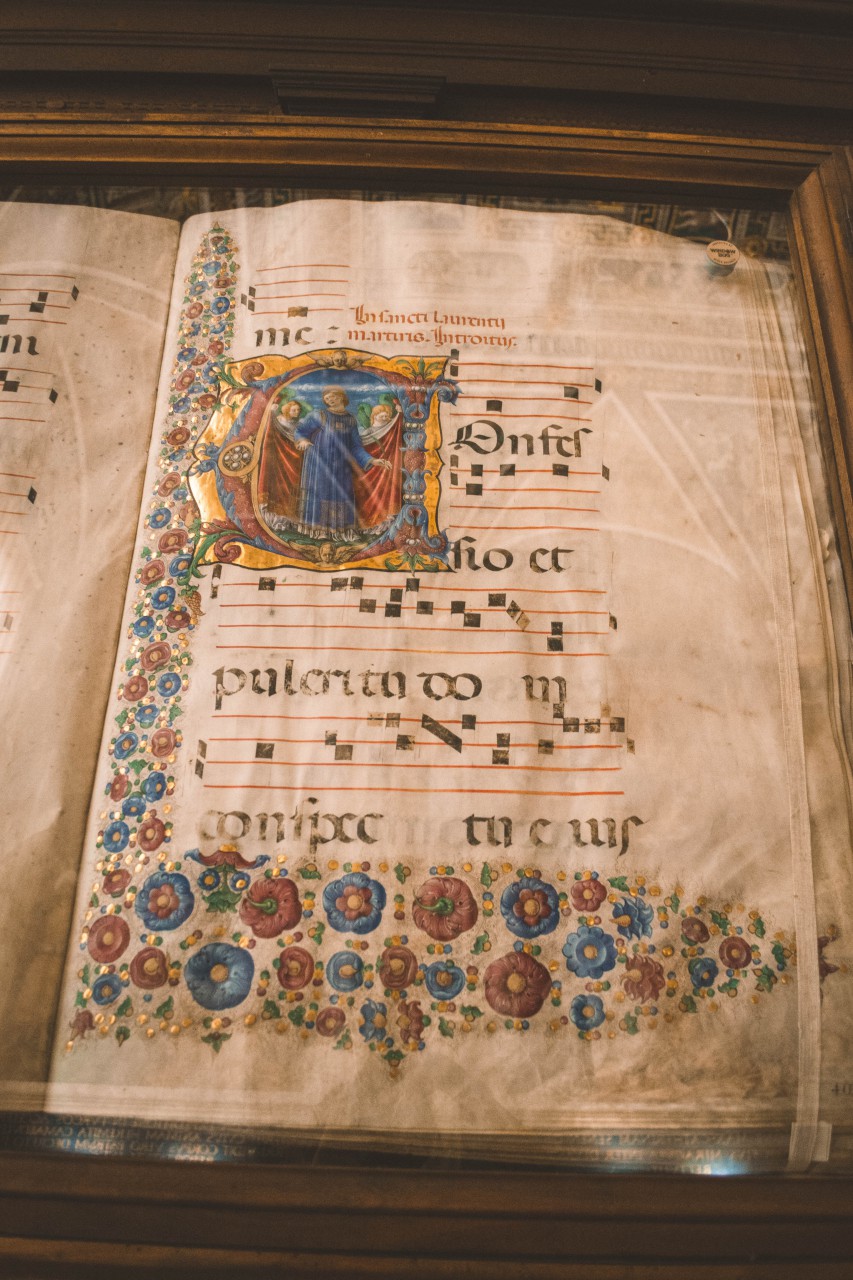 m
me :
In sancti Laurentii
martiris. Introitus.
Onfes
sio et
pulcritu do in
conspec tu e ius
40